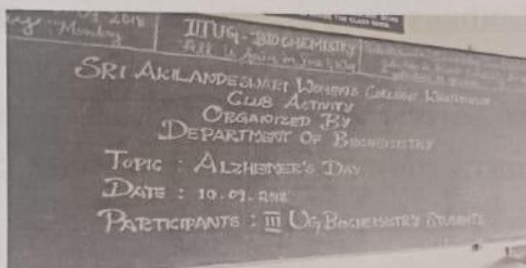 2018
Monday
III UG - BIOCHEMISTRY
SRI AKILANDESWARI WOMEN'S COLLEGE,
CLUB ACTIVITY
ORGANIZED BY
DEPARTMENT OF BIOCHEMISTRY
TOPIC : ALZHEIMER'S DAY
DATE : 10.09.2018
PARTICIPANTS : III UG BIOCHEMISTRY STUDENTS